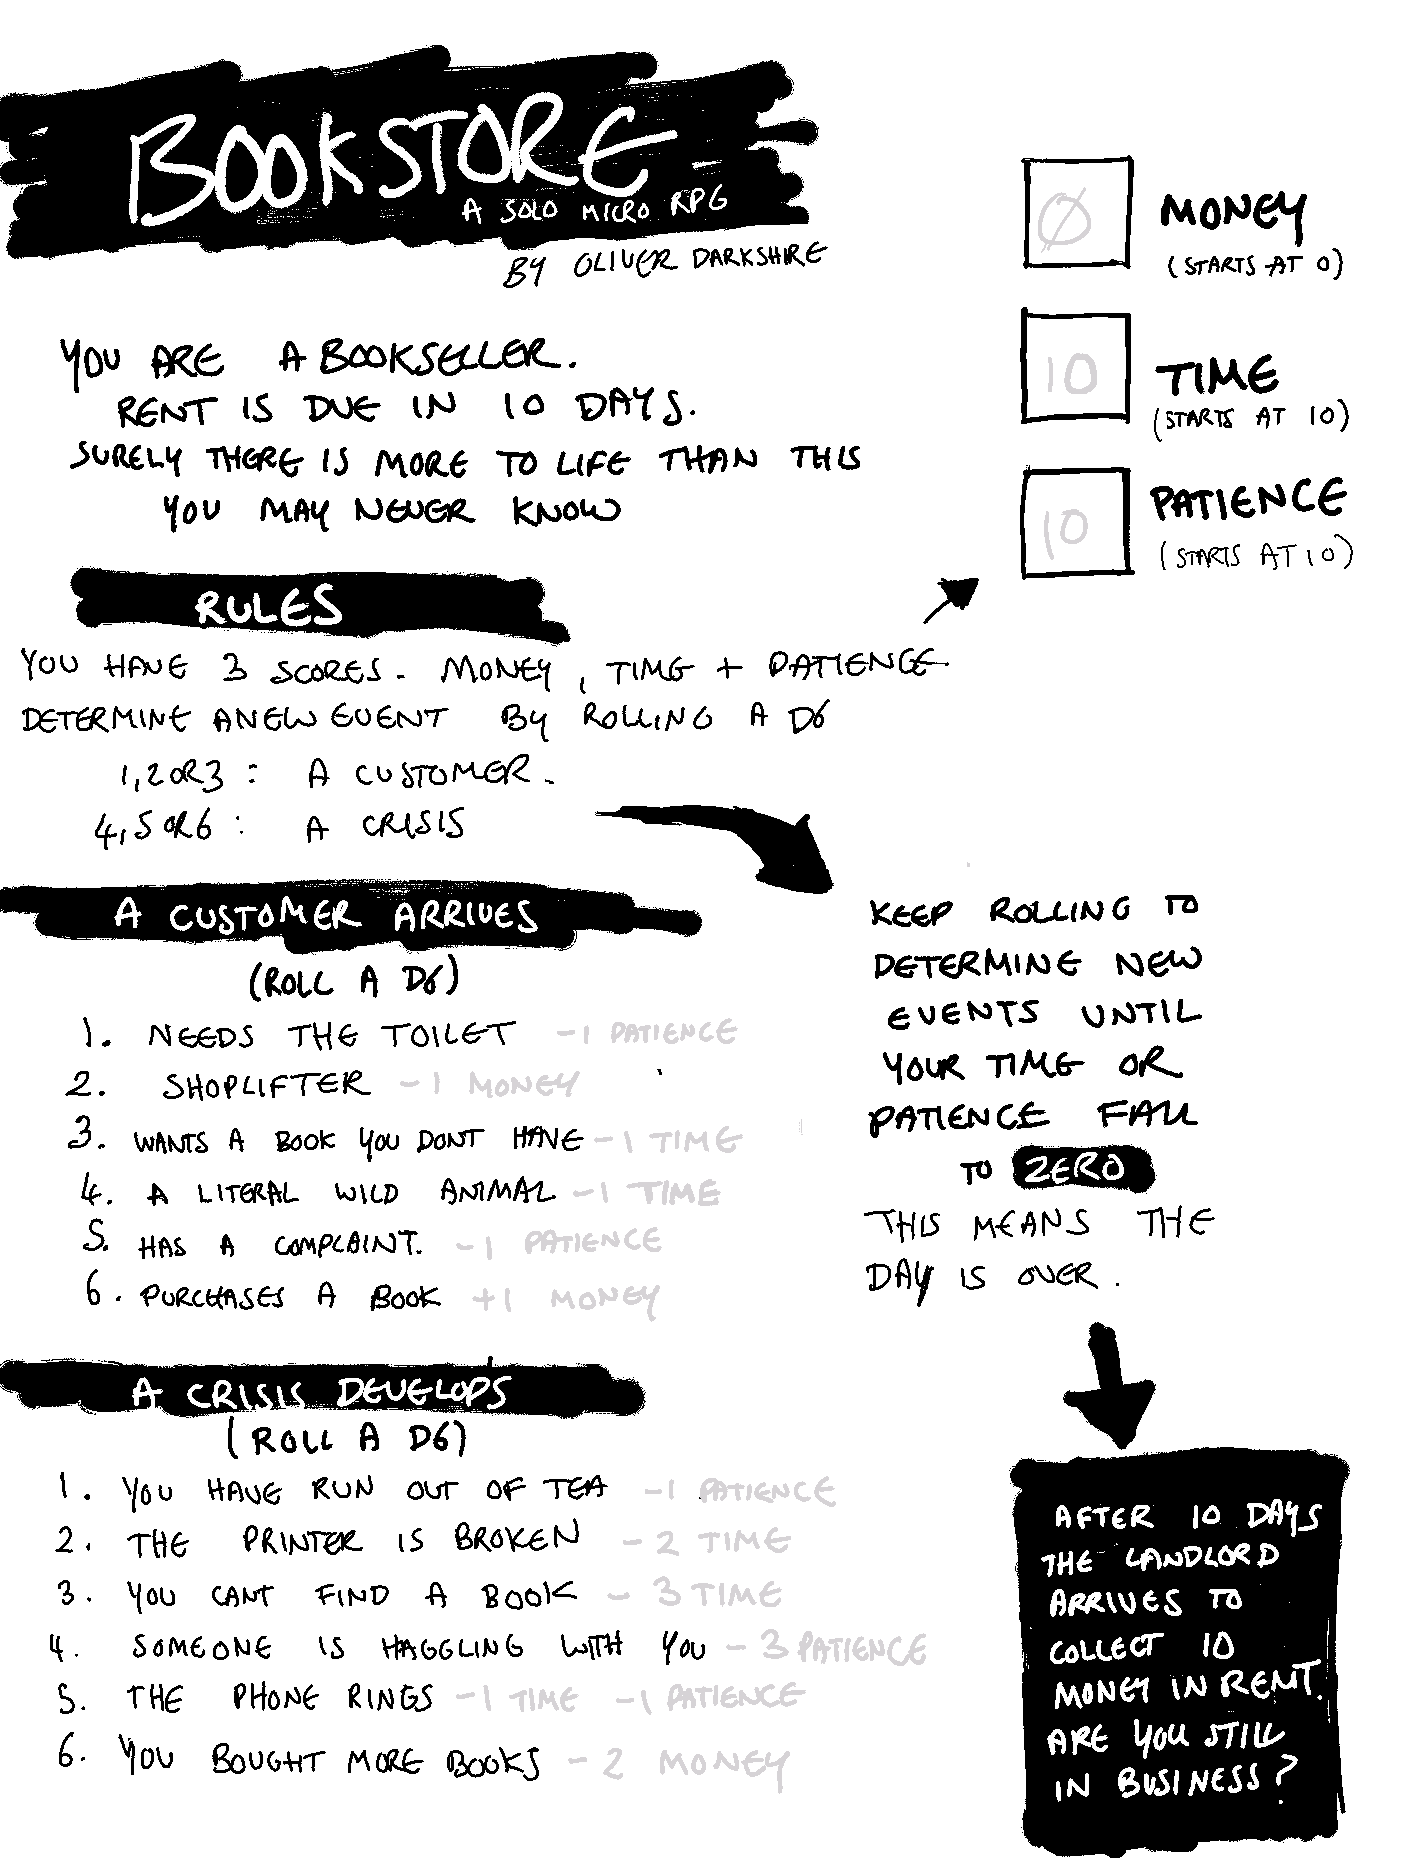 BOOKSTORE
A SOLO MICRO RPG
BY OLIVER DARKSHIRE
YOU ARE A BOOKSELLER.
RENT IS DUE IN 10 DAYS.
SURELY THERE IS MORE TO LIFE THAN THIS
YOU MAY NEVER KNOW
0
MONEY
(STARTS AT 0)
10
TIME
(STARTS AT 10)
10
PATIENCE
(STARTS AT 10)
RULES
YOU HAVE 3 SCORES. MONEY, TIME + PATIENCE
DETERMINE A NEW EVENT BY ROLLING A D6
1, 2 OR 3 : A CUSTOMER.
4, 5 OR 6 : A CRISIS
A CUSTOMER ARRIVES
(ROLL A D6)
1. NEEDS THE TOILET -1 PATIENCE
2. SHOPLIFTER -1 MONEY
3. WANTS A BOOK YOU DONT HAVE -1 TIME
4. A LITERAL WILD ANIMAL -1 TIME
5. HAS A COMPLAINT. -1 PATIENCE
6. PURCHASES A BOOK +1 MONEY
A CRISIS DEVELOPS
(ROLL A D6)
1. YOU HAVE RUN OUT OF TEA -1 PATIENCE
2. THE PRINTER IS BROKEN -2 TIME
3. YOU CANT FIND A BOOK -3 TIME
4. SOMEONE IS HAGGLING WITH YOU -3 PATIENCE
5. THE PHONE RINGS -1 TIME -1 PATIENCE
6. YOU BOUGHT MORE BOOKS -2 MONEY
KEEP ROLLING TO
DETERMINE NEW
EVENTS UNTIL
YOUR TIME OR
PATIENCE FALL
TO ZERO
THIS MEANS THE
DAY IS OVER.
AFTER 10 DAYS
THE LANDLORD
ARRIVES TO
COLLECT 10
MONEY IN RENT.
ARE YOU STILL
IN BUSINESS?